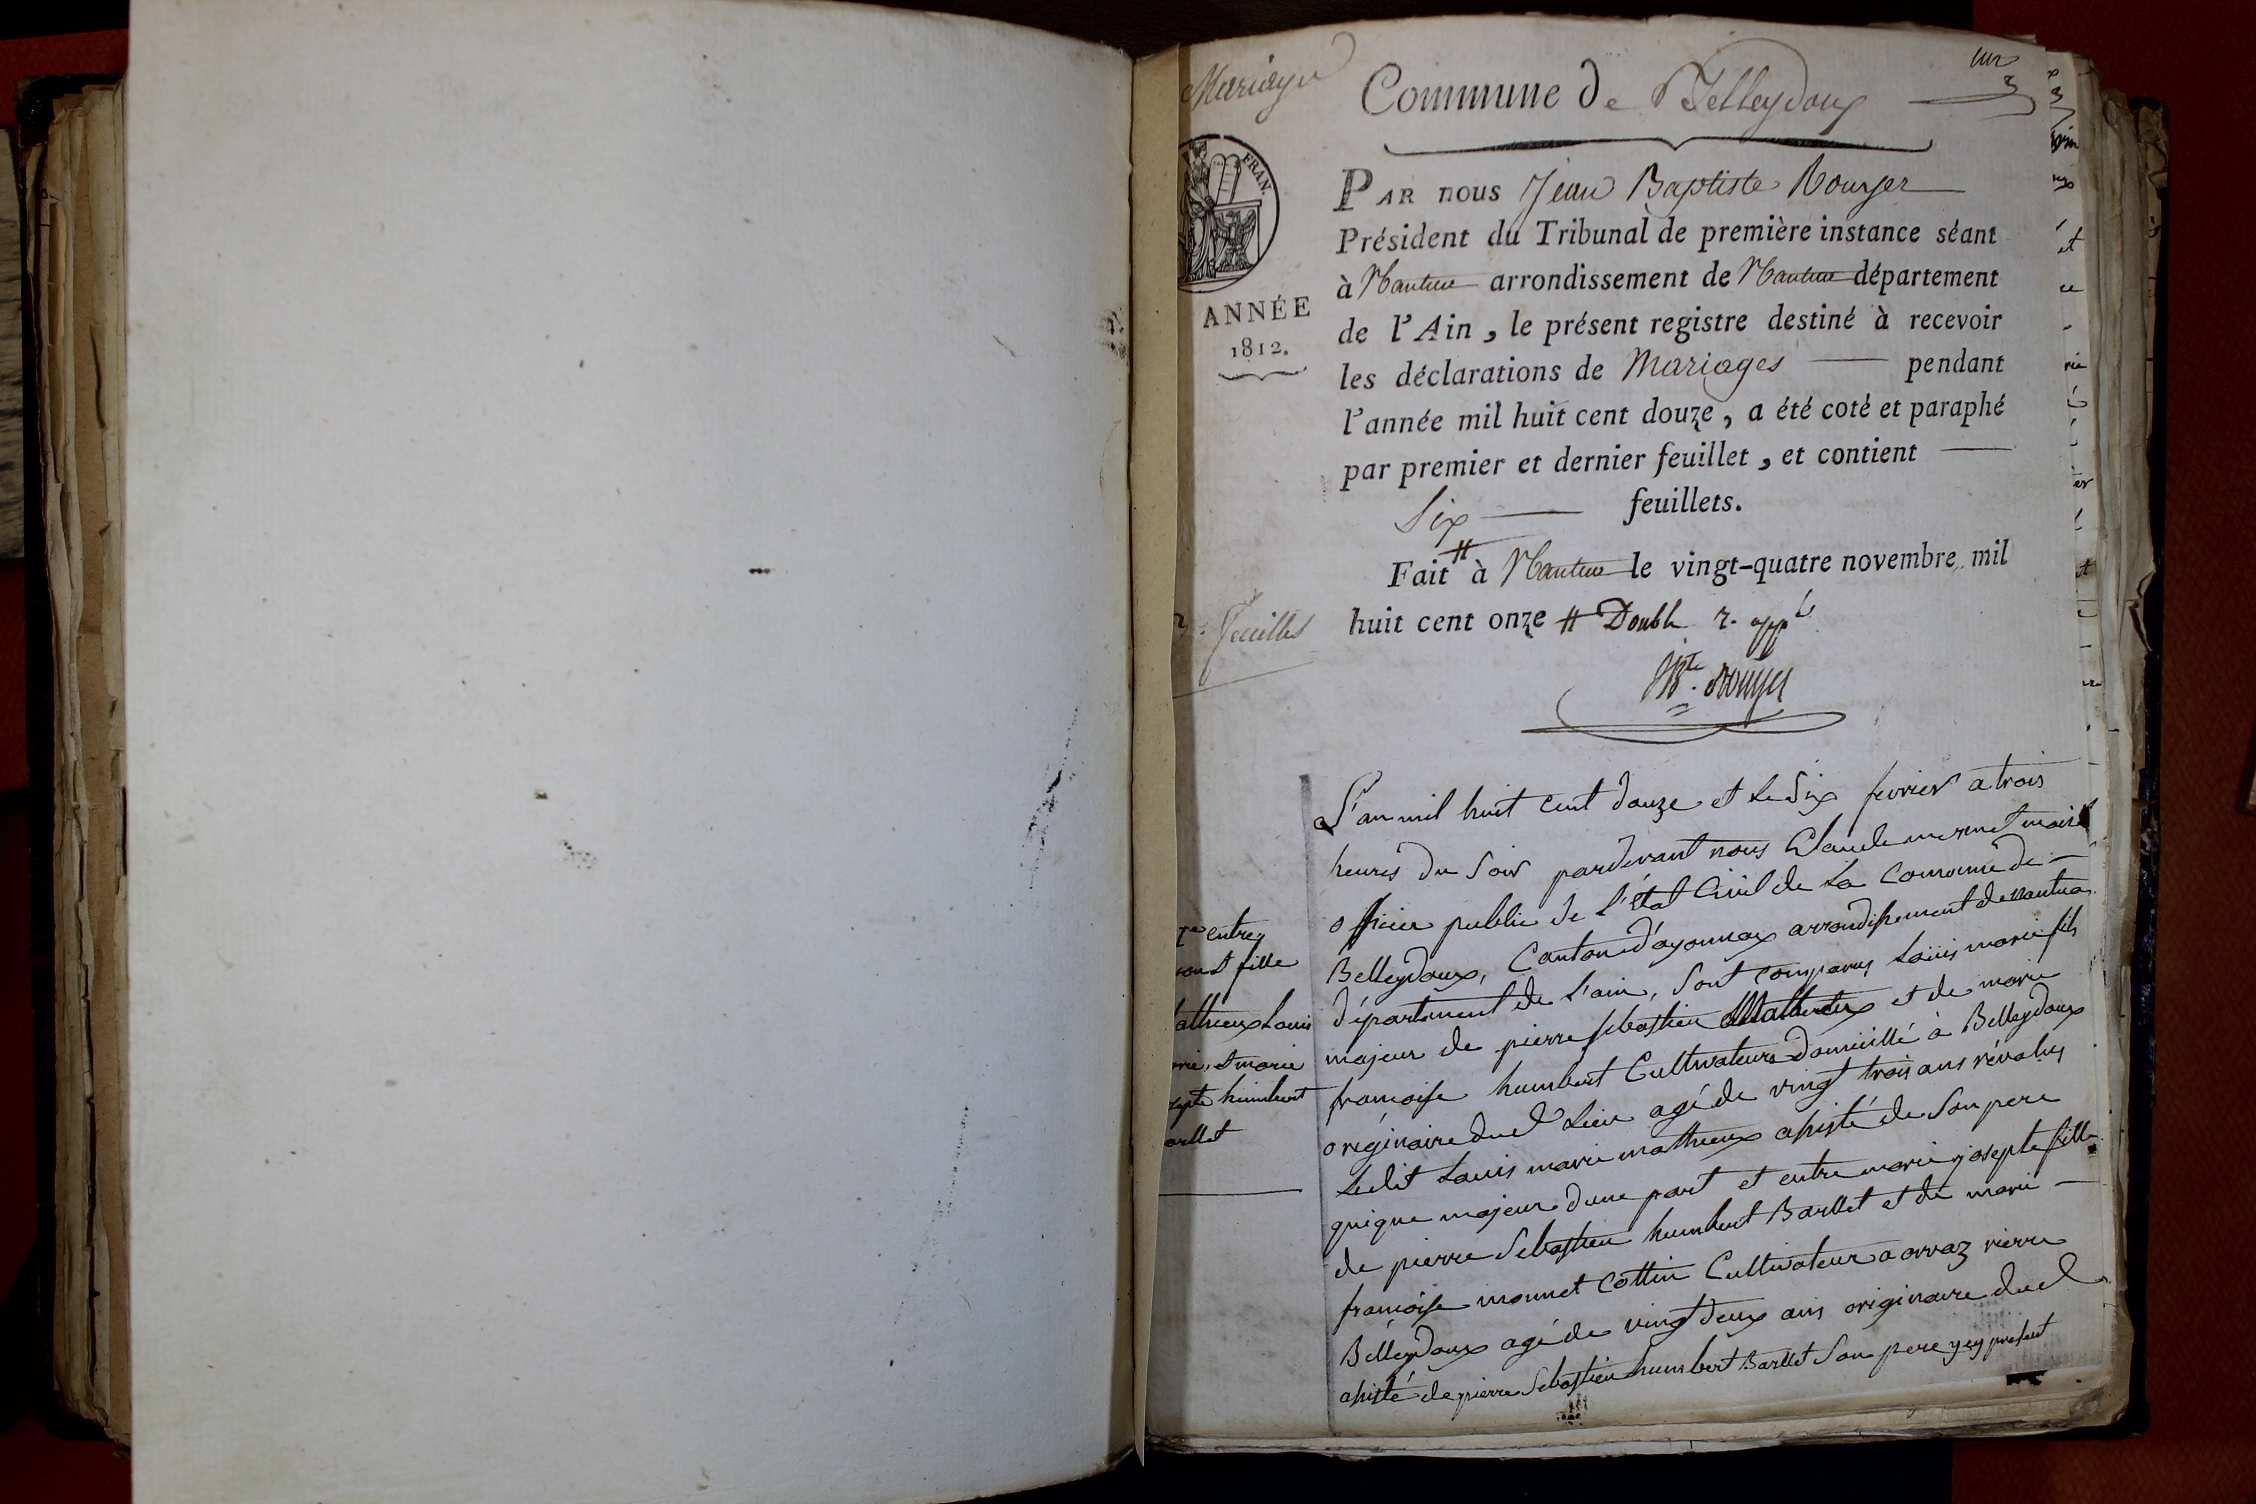 Mariages
Commune de Belleydoux
FRAN.
ANNÉE
1812.
PAR nous Jean Baptiste Rouyer
Président du Tribunal de première instance séant
à Nantua arrondissement de Nantua département
de l'Ain, le présent registre destiné à recevoir
les déclarations de Mariages pendant
l'année mil huit cent douze, a été coté et paraphé
par premier et dernier feuillet, et contient
Six feuillets.
Fait à Nantua le vingt-quatre novembre mil
huit cent onze # Double
feuilles
Bte. Rouyer
entre
fille
athieux Louis
marie
humbert
L'an mil huit cent douze et le Six fevrier a trois
heures du Soir pardevant nous Claude mermet maire
officier public de L'état Civil de La Commune de
Belleydoux, Canton d'ayonnax arrondissement de nantua
département de L'ain, Sont comparus Louis marie fils
majeur de pierre Sebastien Mathieux et de marie
francoise humbert Cultivateurs domicillé à Belleydoux
originaire dud Lieu agé de vingt trois ans révolus
Ledit Louis marie mathieux assisté de Son pere
quique majeur d'une part et entre marie josepte fille
de pierre Sebastien humbert Barllet et de marie
francoise monnet Cottin Cultivateur a orvaz rierre
Belleydoux agé de vingt deux ans originaire dud
assisté de pierre Sebastien humbert Barllet Son pere y ey present